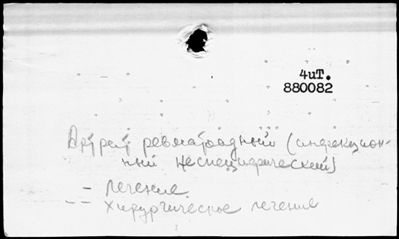 4иТ.
880082
Артрит ревматоидный (инфекцион-
ный неспецифический)
- лечение
-- хирургическое лечение